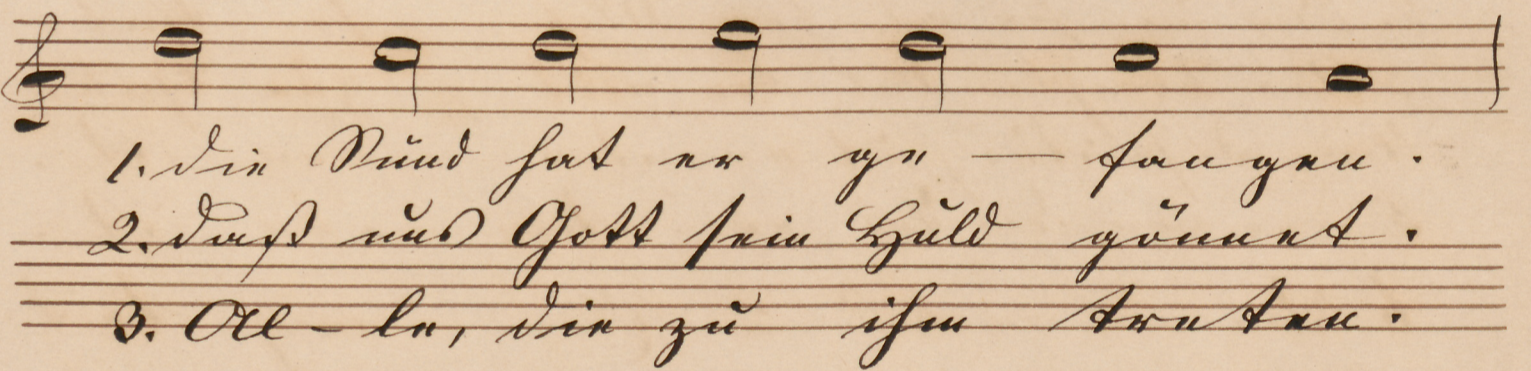 1. die Sünd hat er ge — fangen.
2. daß uns Gott sein Huld gönnet.
3. Al – le, die zu ihm treten.